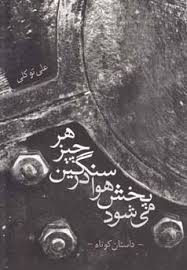 علی توکلی
هر
چیز
سنگین
در هوا
پخش
می شود
- داستان کوتاه -